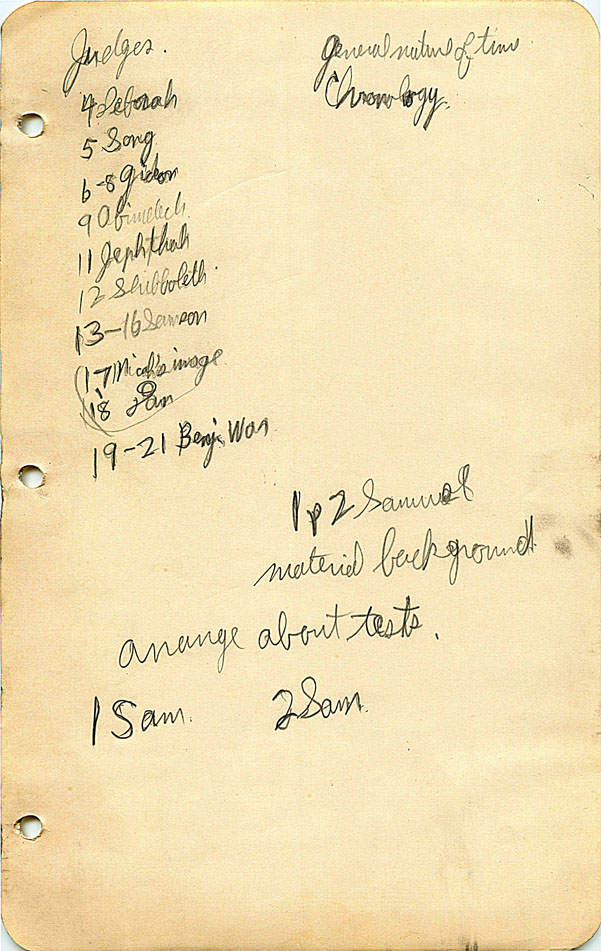 Judges.
General nature of time
Chronology.
4 Deborah
5 Song
6-8 Gideon
9 Abimelech
11 Jephthah
12 Shibboleth.
13-16 Samson
17 Micah's image
18 Dan
19-21 Benj. War
1 2 Samuel
material background
arrange about tests.
1 Sam. 2 Sam.